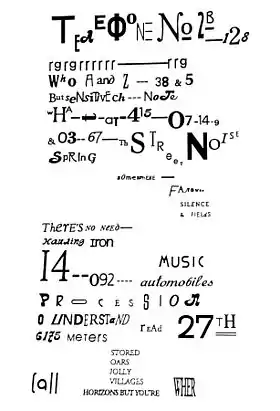 TELEFONE No 2B—128
rgrgrrrrrr———rrg
Who A and 2 — 38 & 5
But seNsiTivE ch --- NoTe
WHA—t—aT—415—07-14-9
& 03--67—Th STReet NOISE
SpRInG
sOmewHERE —
SILENCE
& FIELDS
THerE'S NO NEED—
IRON
14--092---- MUSIC automobiles
PROCESSION
O UNDERSTAND rEAd 27TH
6175 METERS
STORED
OARS
JOLLY
VILLAGES
(all HORIZONS BUT YOU'RE WHER